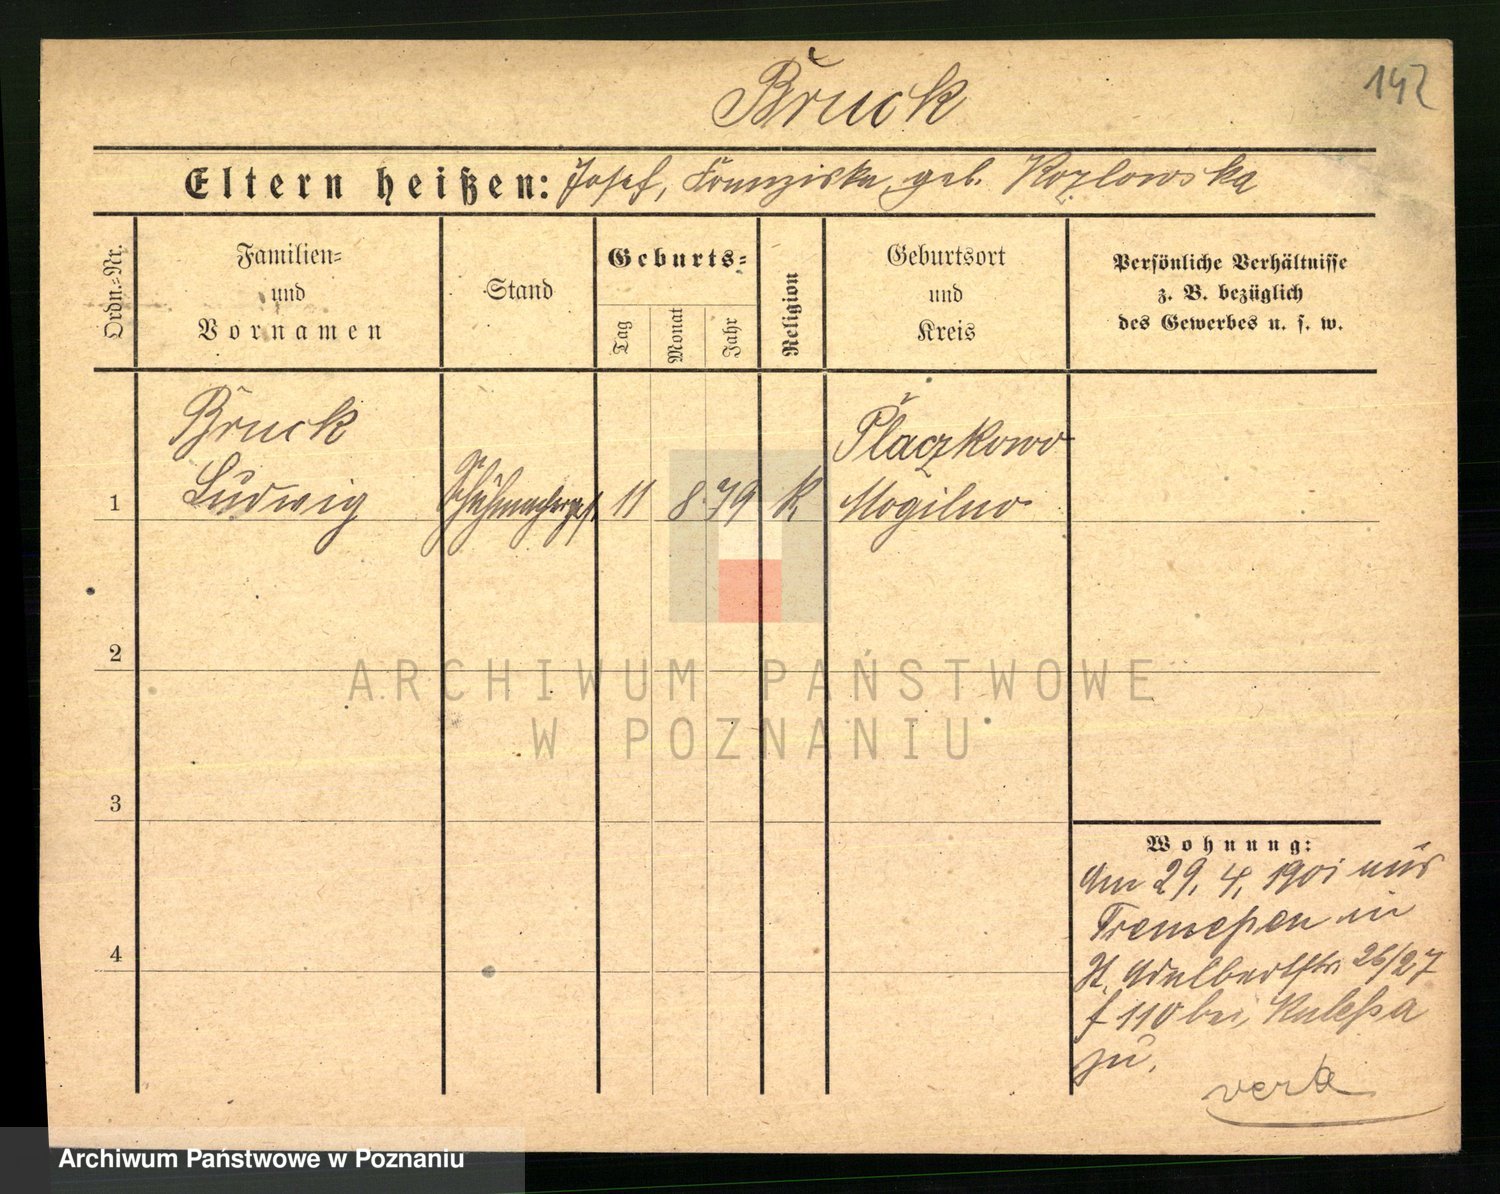 142
Bruck
Eltern heißen: Josef, Franziska, geb. Kozlowska
Ordn.=Nr.
Familien=
und
Vornamen
Stand
Geburts=
Tag
Monat
Jahr
Religion
Geburtsort
und
Kreis
Persönliche Verhältnisse
z. B. bezüglich
des Gewerbes u. s. w.
Bruck
Placzkowo
1 Ludwig Schuhmacherges. 11 8 79 K Mogilno
2
ARCHIWUM PAŃSTWOWE
W POZNANIU
3
Wohnung:
Am 29. 4. 1901 aus
Tremeßen in
St. Adalbertstr. 26/27
f 110 bei Kuleßa
zu.
4
verk
Archiwum Państwowe w Poznaniu